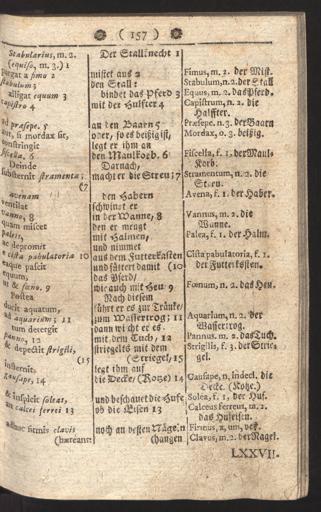 ( 157 )
Stabularius, m. 2. Der Stallknecht 1
(equiso, m. 3.) 1
purgat a fimo 2 mistet aus 2 Fimus, m. 2. der Mist.
stabulum; den Stall: Stabulum, n. 2. der Stall
alligat equum 3 bindet das Pferd 3 Equus, m. 2. das Pferd.
capistro 4 mit der Halfter 4 Capistrum, n. 2. die
Halffter.
ad præsepe. 5 an den Baarn 5 Præsepe. n. 3. der Baarn
aut, si mordax sit, oder, so es beißig ist, Mordax, o. 3. beißig.
constringit legt er ihm an
fiscella. 6 den Maulkorb. 6 Fiscella, f. 1. der Maul-
Korb.
Deinde Darnach,
substernit stramenta; macht er die Streu; 7 Stramentum, n. 2. die
(7 Streu.
avenam den Habern Avena, f. 1. der Haber.
ventilat schwinget er
vanno, 8 in der Wanne, 8 Vannus, m. 2. die
Wanne.
quam miscet den er mengt
paleis, mit Halmen, Palea, f. 1. der Halm.
ac depromit und nimmet
e cista pabulatoria 10 aus dem Futterkasten Cista pabulatoria, f. 1.
eaque pascit und füttert damit (10 der Futterkasten.
equum, das Pferd/
ut & fœno. 9 wie auch mit Heu 9 Fœnum, n. 2. das Heu.
Postea Nach diesem
ducit aquatum, führt er es zur Tränke/
ad aquarium; 11 zum Wassertrog; 11 Aquarium, n. 2. der
Wassertrog.
tum detergit dann wischt er es
panno, 12 mit dem Tuch, 12 Pannus, m. 2. das Tuch.
& depectit strigili, striegelts mit dem Strigilis, f. 3. der Strie-
(15 (Striegel, 15 gel.
insternit, legt ihm auf
gausape, 14 die Decke/ (Kotze) 14 Gausape, n. indecl. die
Decke. (Kotze.)
& inspicit soleas, und beschauet die Hufe Solea, f. 1. der Huf.
an calcei ferrei 13 ob die Eisen 13 Calceus ferreus, m. 2.
das Hufeisen.
adhuc firmis clavis noch an vesten Nägeln Firmus, a, um, vest.
(hæreant. (hangen Clavus, m. 2. der Nagel.
LXXVII.